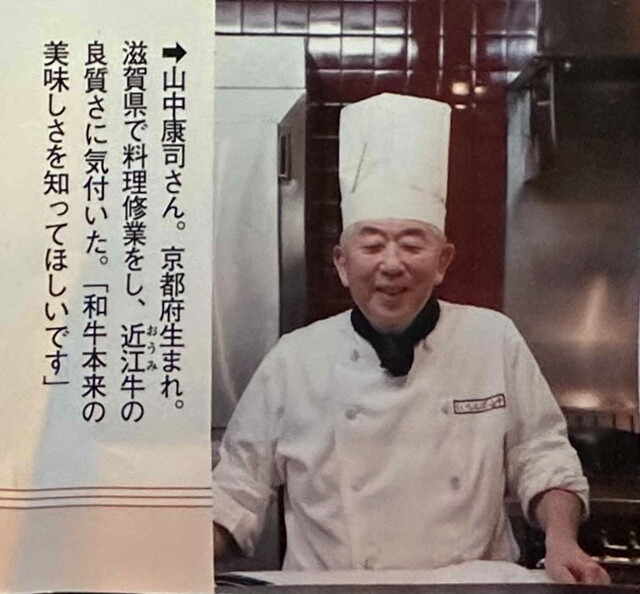 ➡山中康司さん。京都府生まれ。
滋賀県で料理修業をし、近江牛の
おうみ
良質さに気付いた。「和牛本来の
美味しさを知ってほしいです」